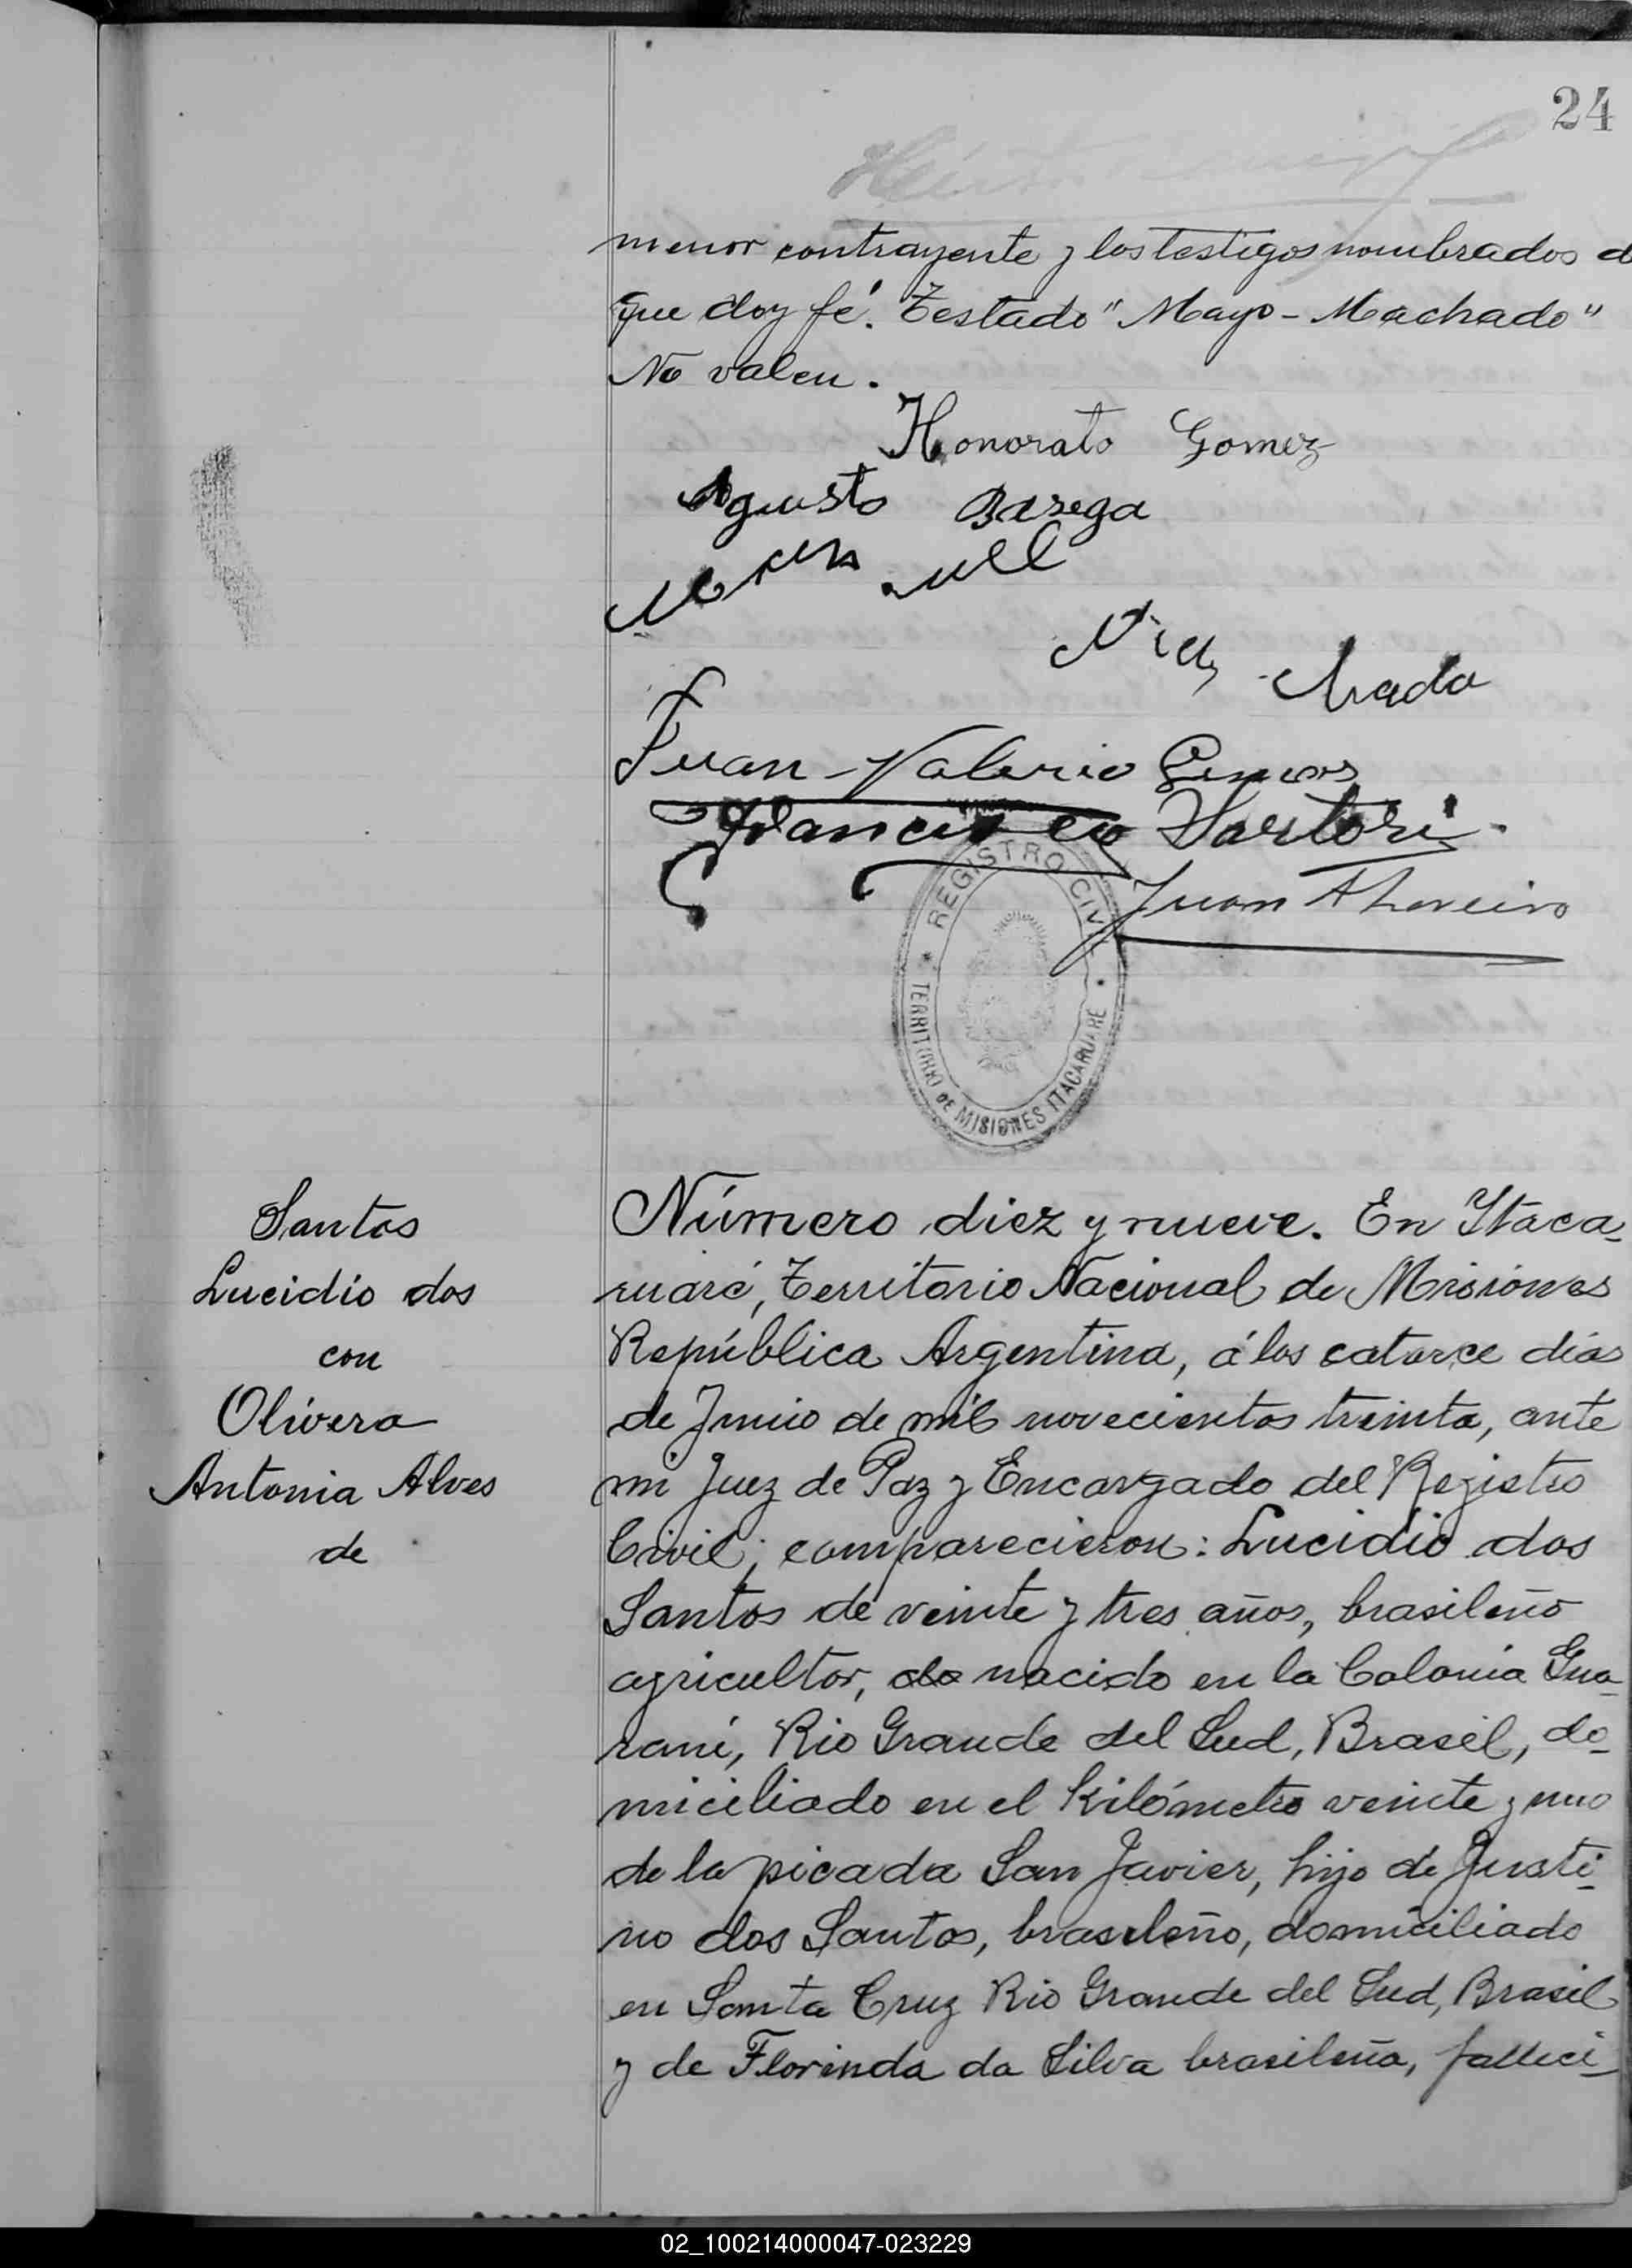 24
menor contrayente y los testigos nombrados d
que doy fé. Testado "Mayo - Machado"
No valen.
Honorato Gomez
Agusto Barega
Juan Valerio
Francisco Sartori
Juan
REGISTRO CIVIL
TERRITORIO DE MISIONES ITACARUARE
Santos
Lucidio dos
con
Olivera
Antonia Alves
de
Número diez y nueve. En Itaca-
ruaré, Territorio Nacional de Misiones
República Argentina, á los catorce dias
de Junio de mil novecientos treinta, ante
mi Juez de Paz y Encargado del Registro
Civil; comparecieron: Lucidio dos
Santos de veinte y tres años, brasileño
agricultor, do nacido en la Colonia Gua-
raní, Rio Grande del Sud, Brasil, do-
miciliado en el Kilómetro veinte y uno
de la picada San Javier, hijo de Justi-
no dos Santos, brasileño, domiciliado
en Santa Cruz Rio Grande del Sud, Brasil
y de Florinda da Silva brasileña, falleci-
02_100214000047-023229